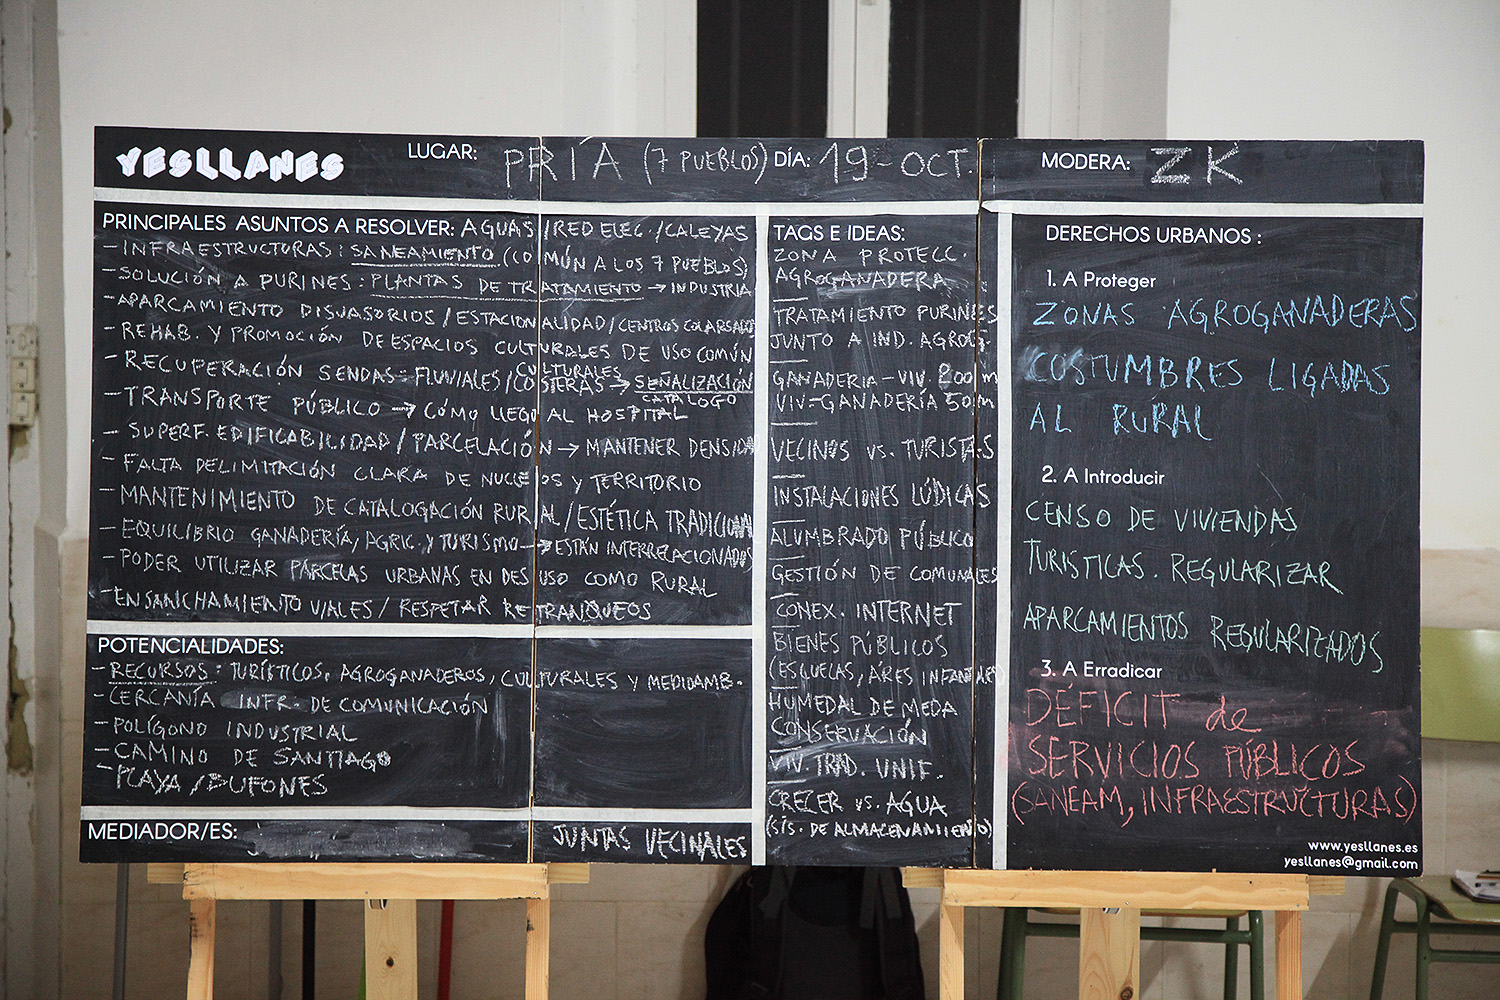 YESLLANES
LUGAR: PRÍA (7 PUEBLOS) DÍA: 19 OCT.
MODERA: ZK
PRINCIPALES ASUNTOS A RESOLVER: AGUAS/RED ELEC./CALEYAS
- INFRAESTRUCTURAS: SANEAMIENTO (COMÚN A LOS 7 PUEBLOS)
- SOLUCIÓN A PURINES: PLANTAS DE TRATAMIENTO → INDUSTRIA
- APARCAMIENTO DISUASORIOS / ESTACIONALIDAD / CENTROS COLAPSADOS
- REHAB. Y PROMOCIÓN DE ESPACIOS CULTURALES DE USO COMÚN
- RECUPERACIÓN SENDAS: FLUVIALES/COSTERAS → SEÑALIZACIÓN
CULTURALES
CATÁLOGO
- TRANSPORTE PÚBLICO → CÓMO LLEGO AL HOSPITAL
- SUPERF. EDIFICABILIDAD / PARCELACIÓN → MANTENER DENSIDAD
- FALTA DELIMITACIÓN CLARA DE NUCLEOS Y TERRITORIO
- MANTENIMIENTO DE CATALOGACIÓN RURAL / ESTÉTICA TRADICIONAL
- EQUILIBRIO GANADERÍA, AGRIC. Y TURISMO → ESTÁN INTERRELACIONADOS
- PODER UTILIZAR PARCELAS URBANAS EN DESUSO COMO RURAL
- ENSANCHAMIENTO VIALES / RESPETAR RETRANQUEOS
POTENCIALIDADES:
- RECURSOS: TURÍSTICOS, AGROGANADEROS, CULTURALES Y MEDIOAMB.
- CERCANÍA INFR. DE COMUNICACIÓN
- POLÍGONO INDUSTRIAL
- CAMINO DE SANTIAGO
- PLAYA / BUFONES
MEDIADOR/ES: JUNTAS VECINALES
TAGS E IDEAS:
ZONA PROTECC.
AGROGANADERA
TRATAMIENTO PURINES
JUNTO A IND. AGROG.
GANADERIA - VIV. 200 m
VIV - GANADERÍA 50m
VECINOS vs. TURISTAS
INSTALACIONES LÚDICAS
ALUMBRADO PÚBLICO
GESTIÓN DE COMUNALES
CONEX. INTERNET
BIENES PÚBLICOS
(ESCUELAS, ÁRES INFANTIL)
HUMEDAL DE MEDA
CONSERVACIÓN
VIV. TRAD. UNIF.
CRECER vs. AGUA
(SIS. DE ALMACENAMIENTO)
DERECHOS URBANOS :
1. A Proteger
ZONAS AGROGANADERAS
COSTUMBRES LIGADAS
AL RURAL
2. A Introducir
CENSO DE VIVIENDAS
TURISTICAS. REGULARIZAR
APARCAMIENTOS REGULARIZADOS
3. A Erradicar
DÉFICIT de
SERVICIOS PÚBLICOS
(SANEAM, INFRAESTRUCTURAS)
www.yesllanes.es
yesllanes@gmail.com